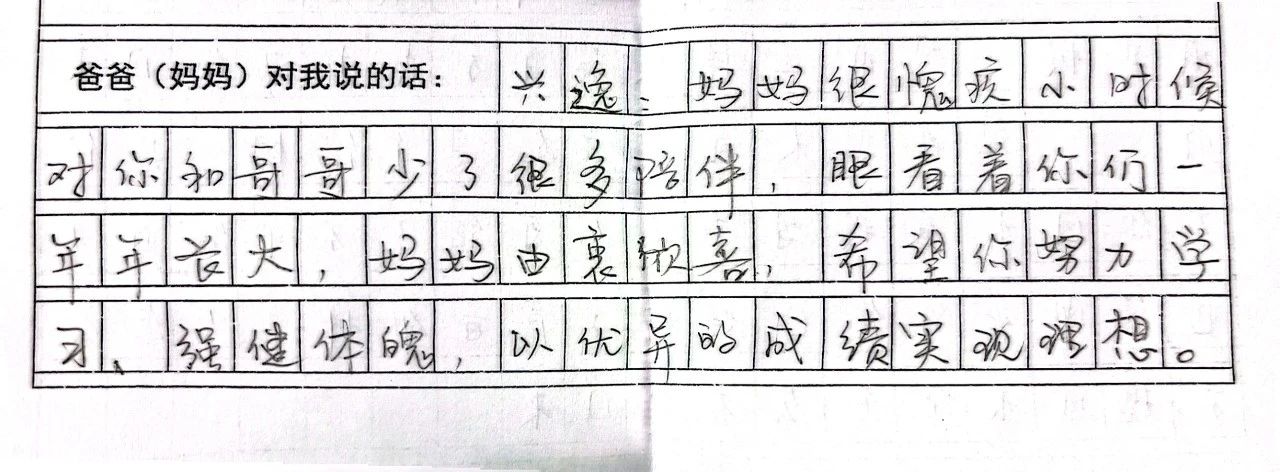 爸爸（妈妈）对我说的话：兴逸：妈妈很愧疚小时候
对你和哥哥少了很多陪伴，眼看着你们一
年年长大，妈妈由衷欣喜，希望你努力学
习、强健体魄，以优异的成绩实现理想。